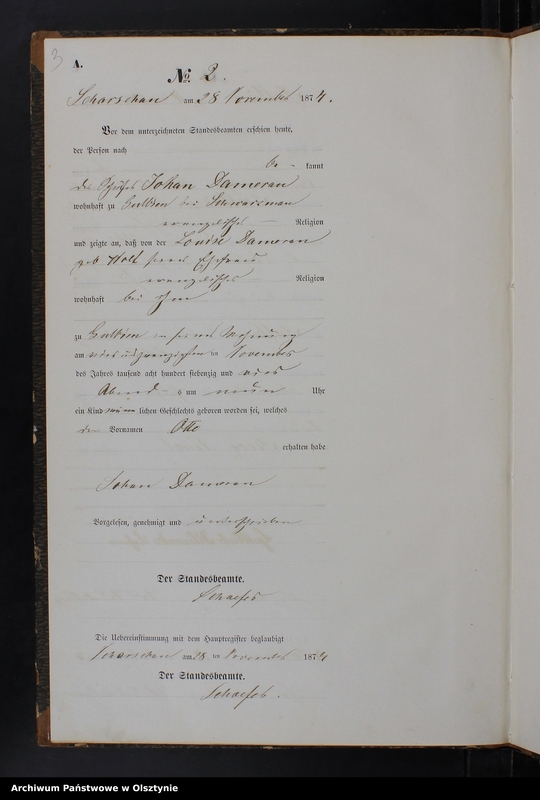 3
A.
No. 2.
Scharschau am 28 November 1874.
Vor dem unterzeichneten Standesbeamten erschien heute,
der Person nach
be – kannt
Johan Dameran
wohnhaft zu bei
evangelischer Religion
und zeigte an, daß von der Louise Dameran
geb. seine Ehefrau
evangelischer Religion
wohnhaft bei ihm
zu in seiner Wohnung
am vier und zwanzigsten ten November
des Jahres tausend acht hundert siebenzig und vier
Abends um neun Uhr
ein Kind männlichen Geschlechts geboren worden sei, welches
den Vornamen Otto
erhalten habe
Johan Dameran
Vorgelesen, genehmigt und unterschrieben
Der Standesbeamte.
Die Uebereinstimmung mit dem Hauptregister beglaubigt
Scharschau am 28 ten November 1874
Der Standesbeamte.
Archiwum Państwowe w Olsztynie